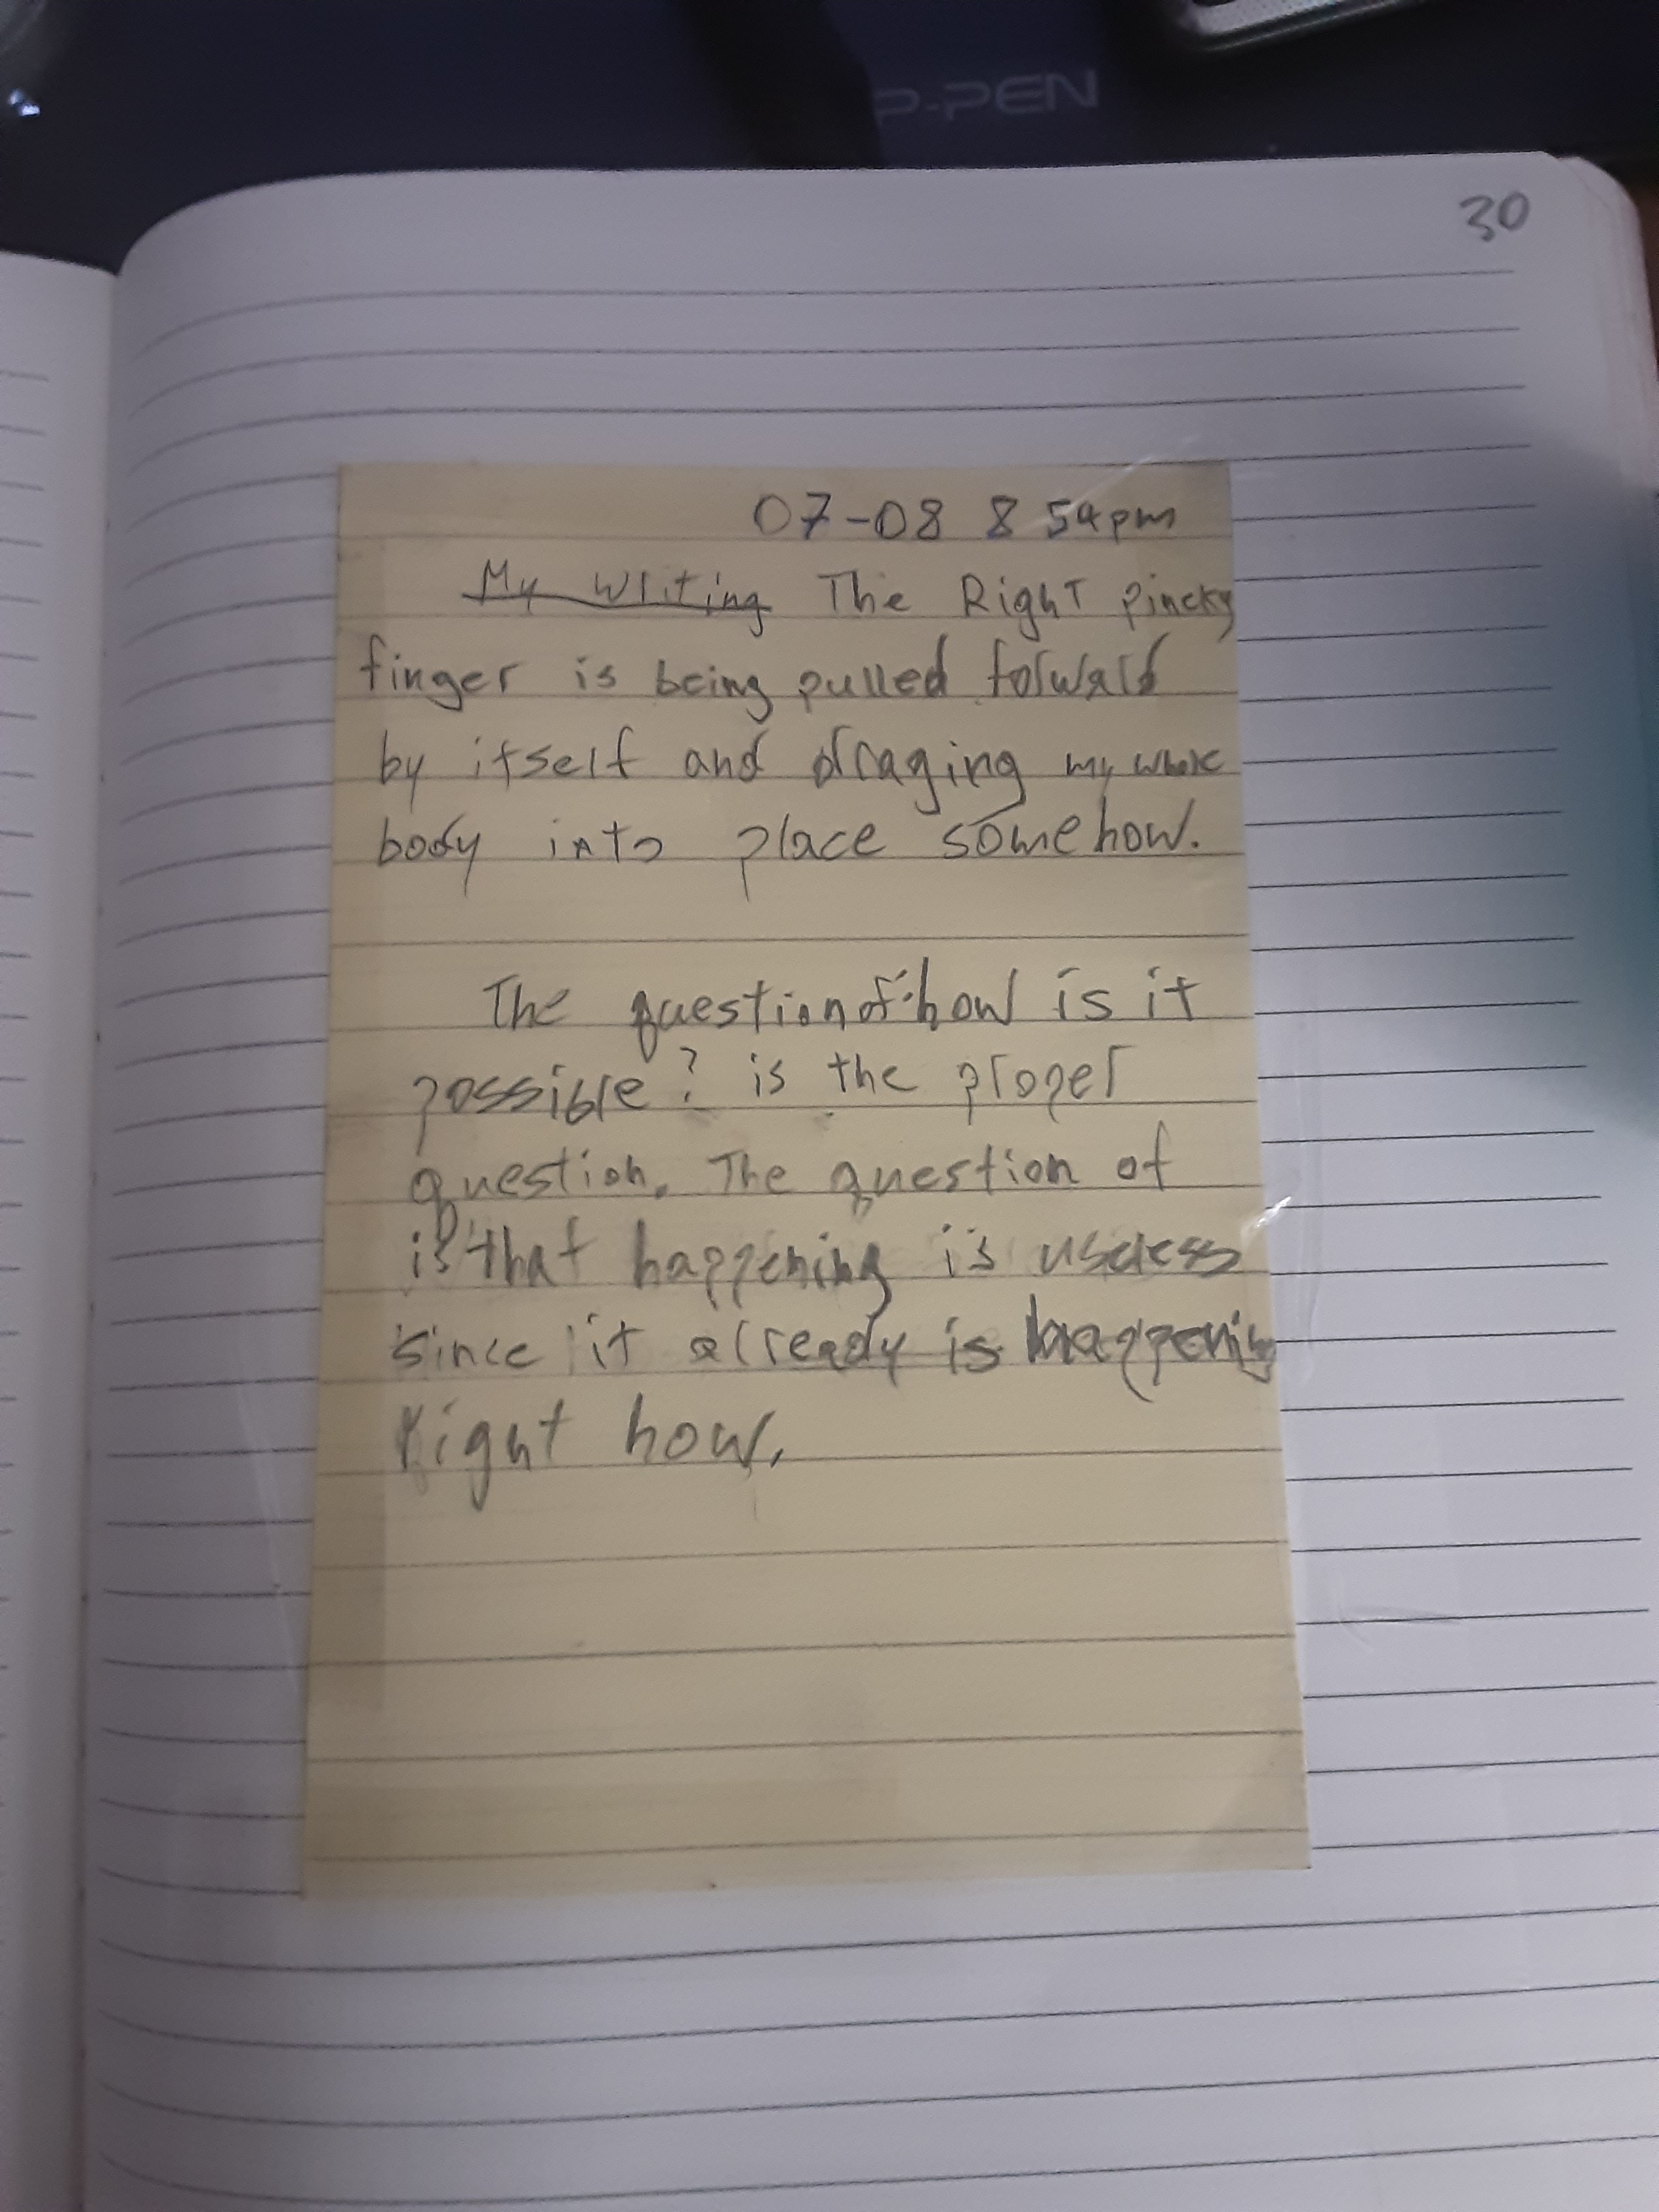 P-PEN
30
07-08 8 54pm
My Writing The Right pincky
finger is being pulled forward
by itself and draging my whole
body into place somehow.
The question of how is it
possible? is the proper
question. The question of
is that happening is useless
since it already is happening
right now.